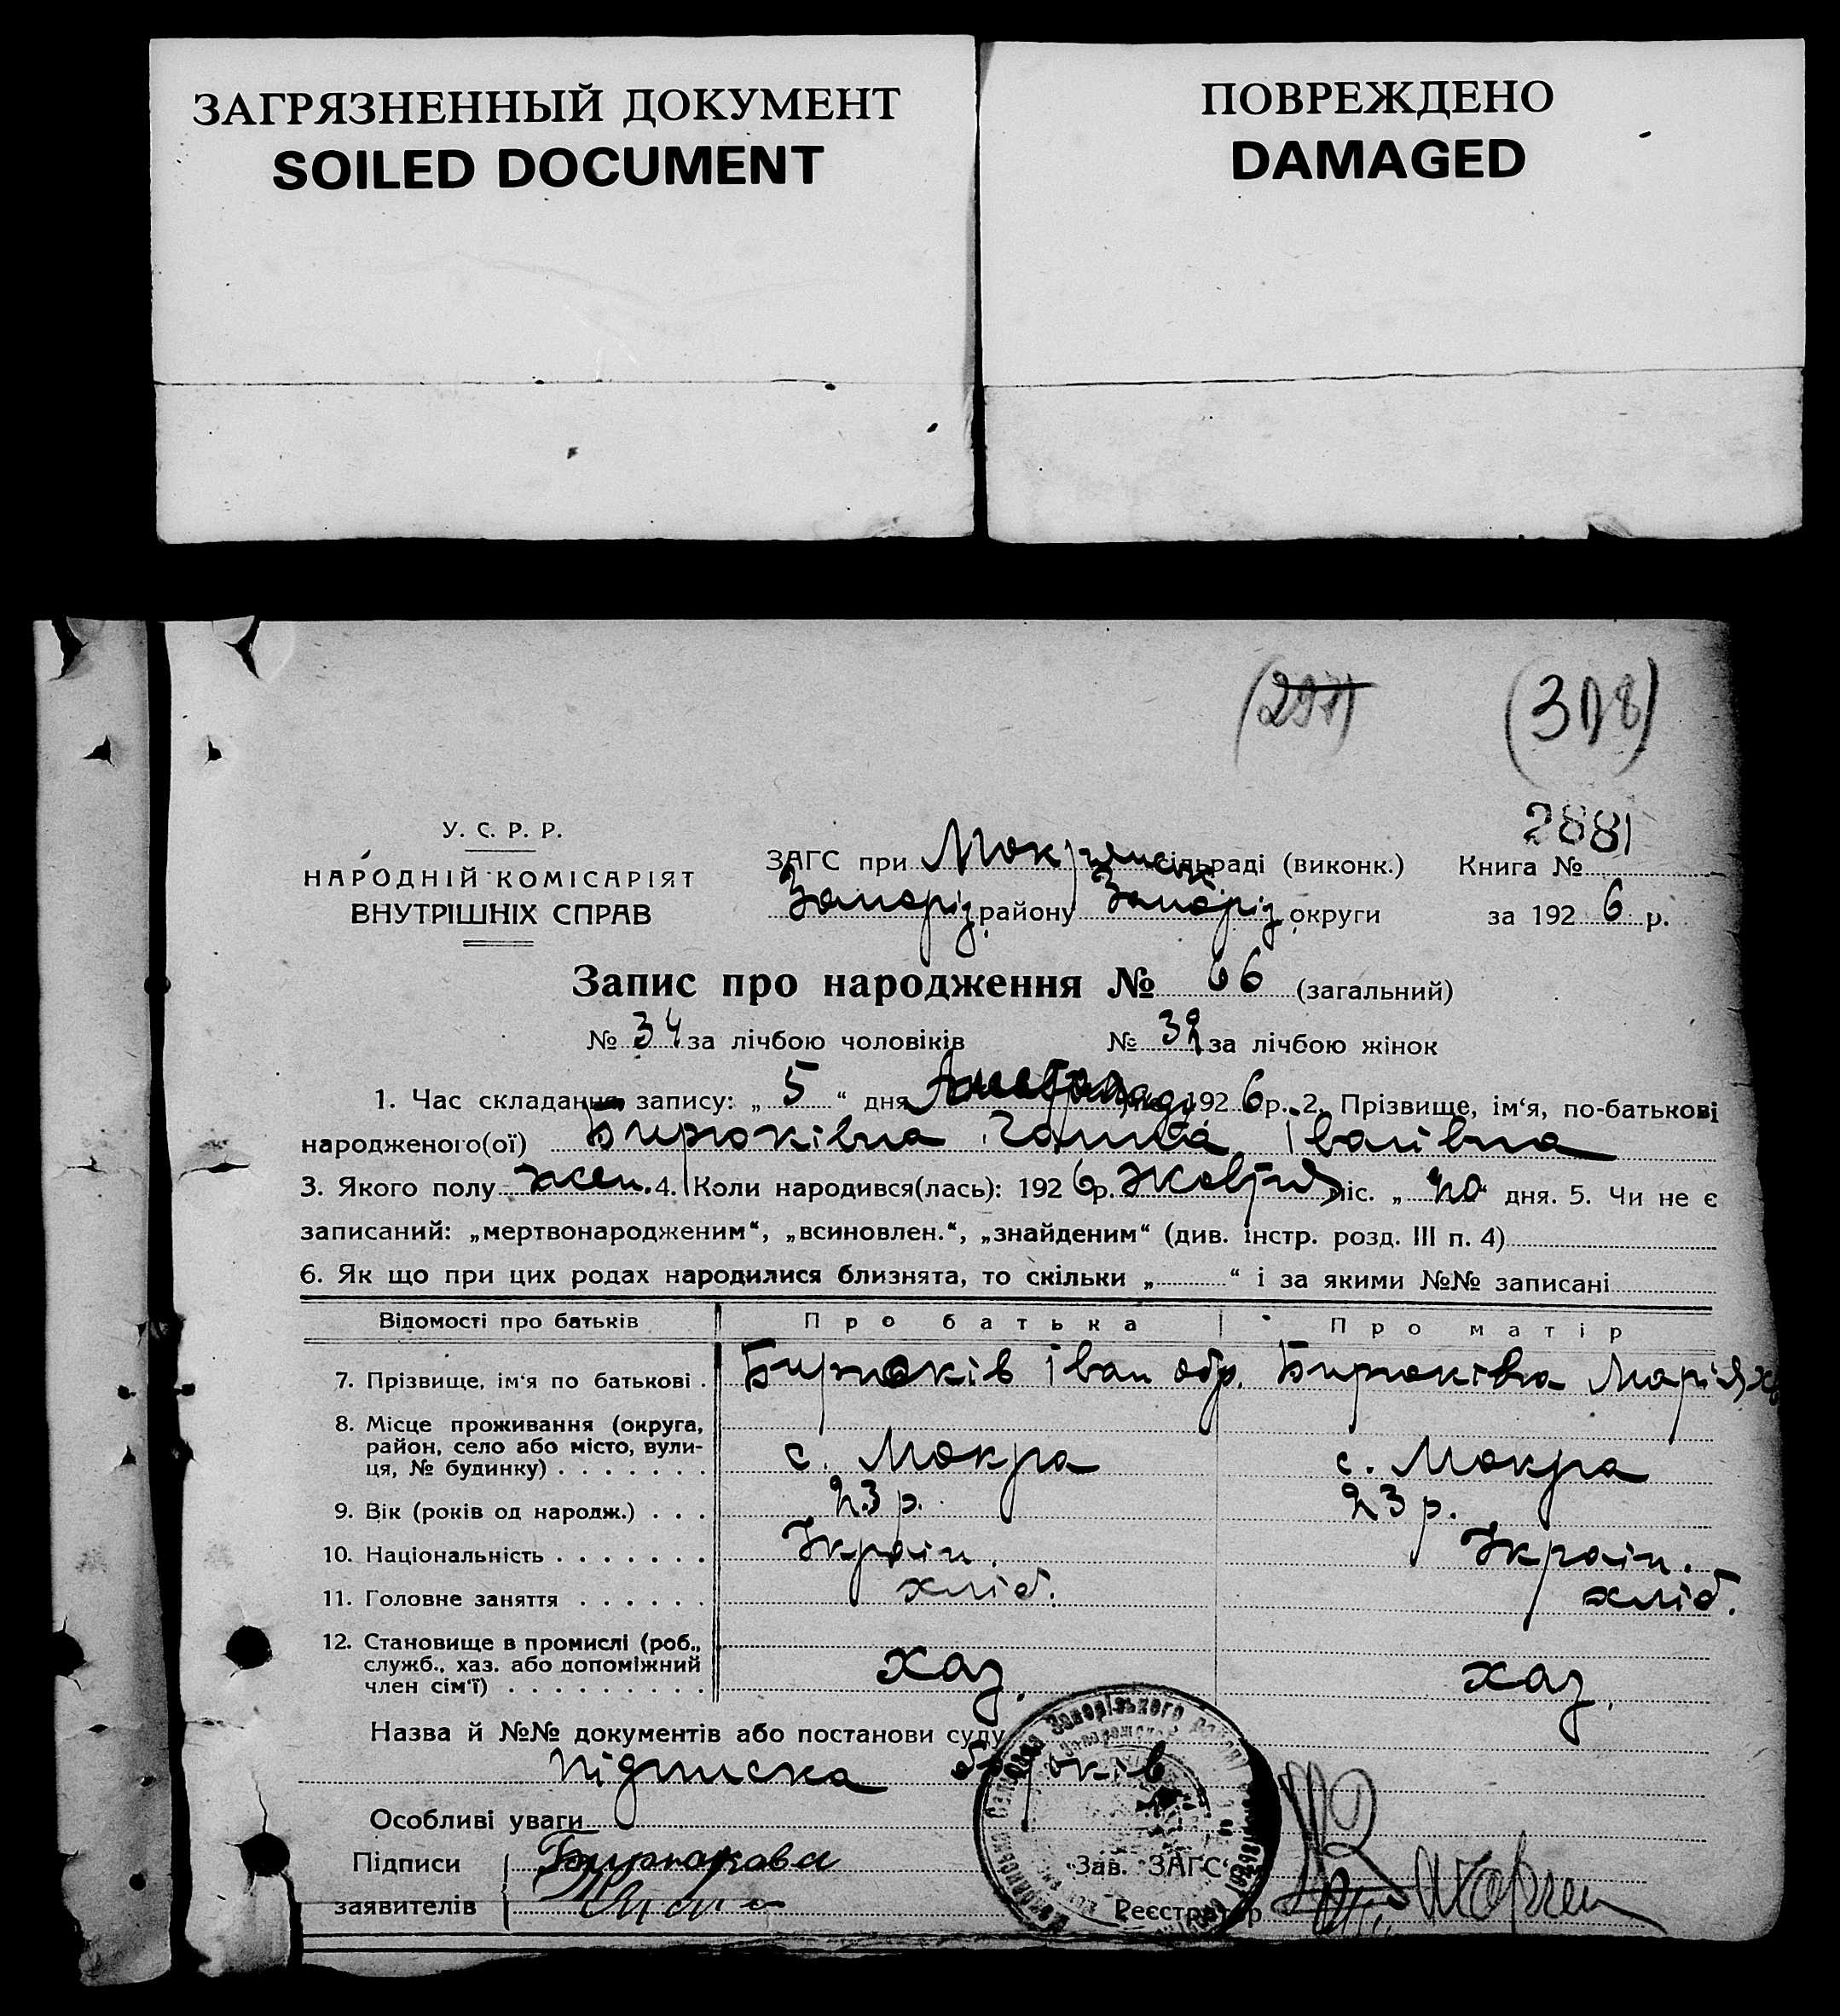 ЗАГРЯЗНЕННЫЙ ДОКУМЕНТ
SOILED DOCUMENT
ПОВРЕЖДЕНО
DAMAGED
У. С. Р. Р.
НАРОДНІЙ КОМІСАРІЯТ
ВНУТРІШНІХ СПРАВ
2881
ЗАГС при Мокрянськ. сільраді (виконк.) Книга №
Запоріз. району Запоріз. округи за 1926 р.
Запис про народження № 66 (загальний)
№ 34 за лічбою чоловіків № 32 за лічбою жінок
1. Час складання запису: „ 5 “ дня 1926 р. 2. Прізвище, ім‘я, по-батькові
народженого(ої) Бирюківна Іванівна
3. Якого полу жен. 4. Коли народився(лась): 1926 р. Жовтня міс. „ “ дня. 5. Чи не є
записаний: „мертвонародженим“, „всиновлен.“, „знайденим“ (див. інстр. розд. III п. 4)
6. Як що при цих родах народилися близнята, то скільки „ “ і за якими №№ записані
Відомості про батьків Про батька Про матір
7. Прізвище, ім‘я по батькові . Бирюків Іван Бирюківна Марія
8. Місце проживання (округа,
район, село або місто, вули-
ця, № будинку) . . . . . . . с. Мокра с. Мокра
9. Вік (років од народж.) . . . 23 р. 23 р.
10. Національність . . . . . . . Україн. Україн.
11. Головне заняття . . . . . . хліб. хліб.
12. Становище в промислі (роб.,
служб., хаз. або допоміжний
член сім‘ї) . . . . . . . . . хаз. хаз.
Назва й №№ документів або постанови суду
Підписка
Особливі уваги
Підписи Бирюкова Зав. ЗАГС‘ом
заявителів Реєстратор